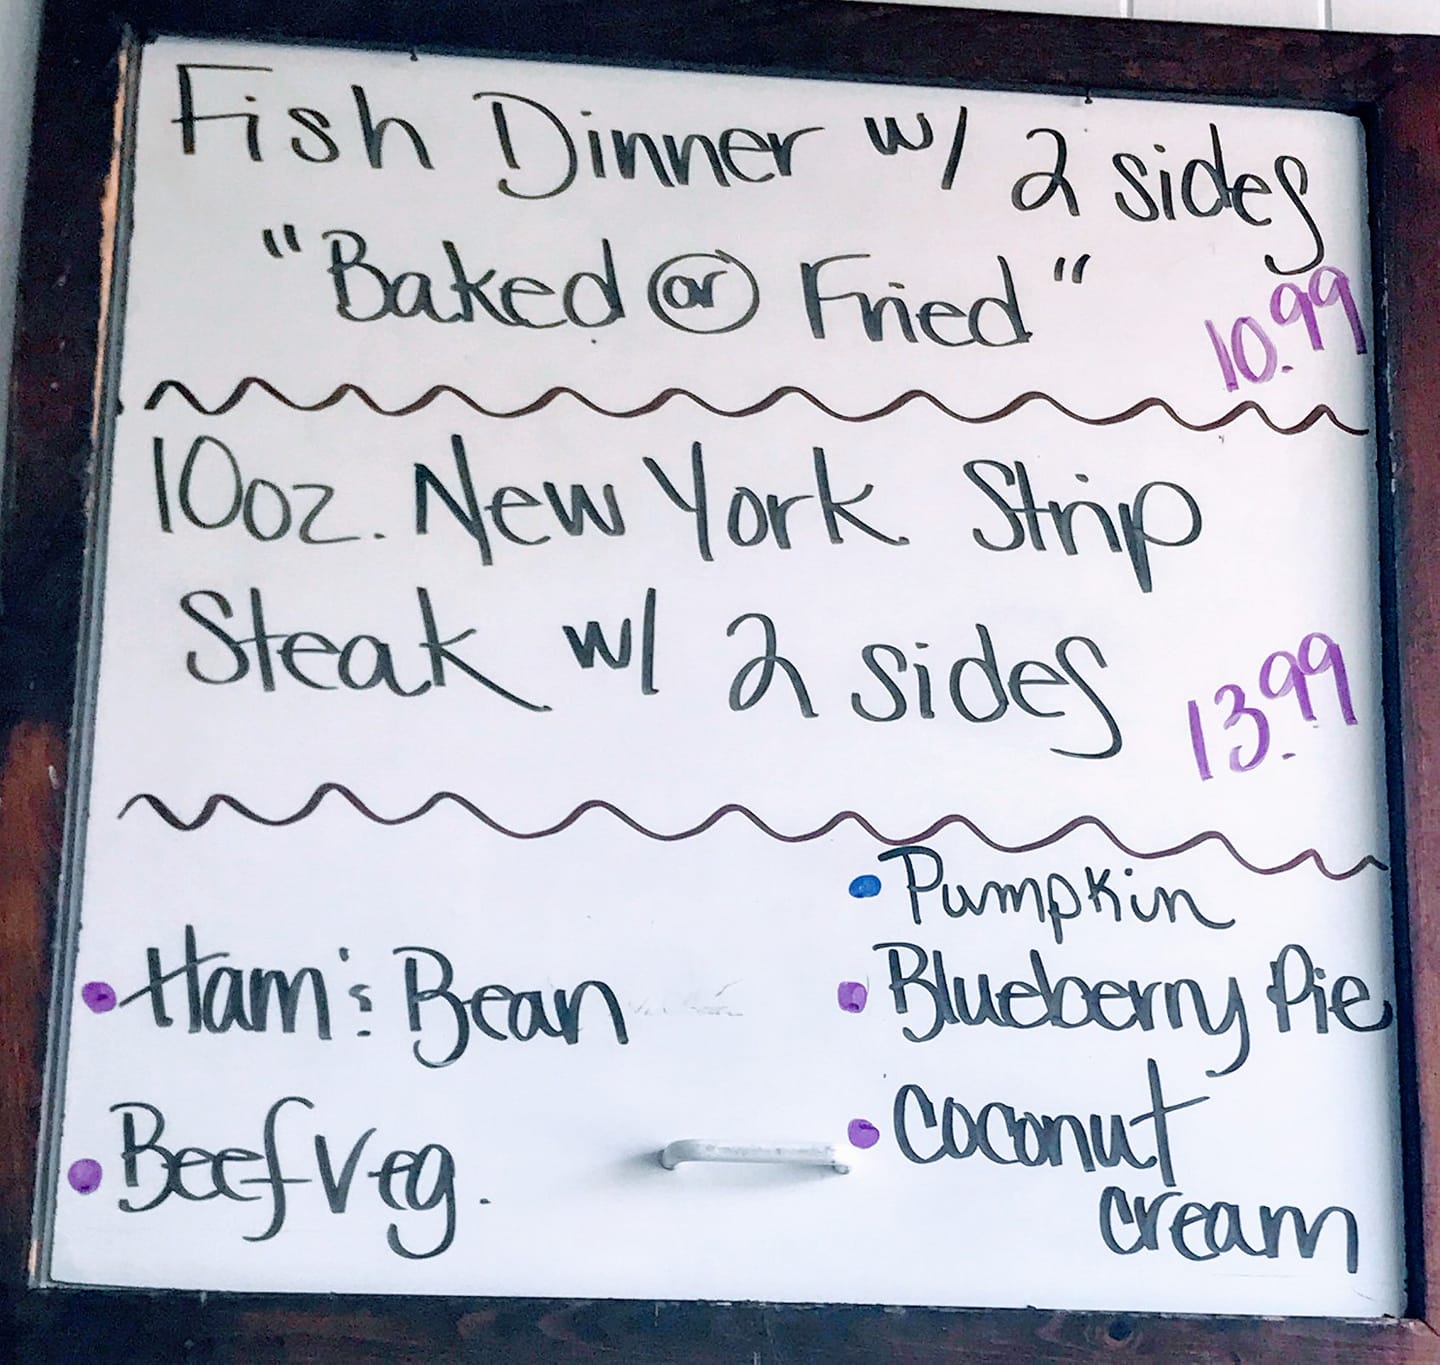 Fish Dinner w/ 2 sides
"Baked or Fried"
10.99
10oz. New York Strip
Steak w/ 2 sides
13.99
• Ham & Bean
• Beef Veg.
• Pumpkin
• Blueberry Pie
• Coconut
cream